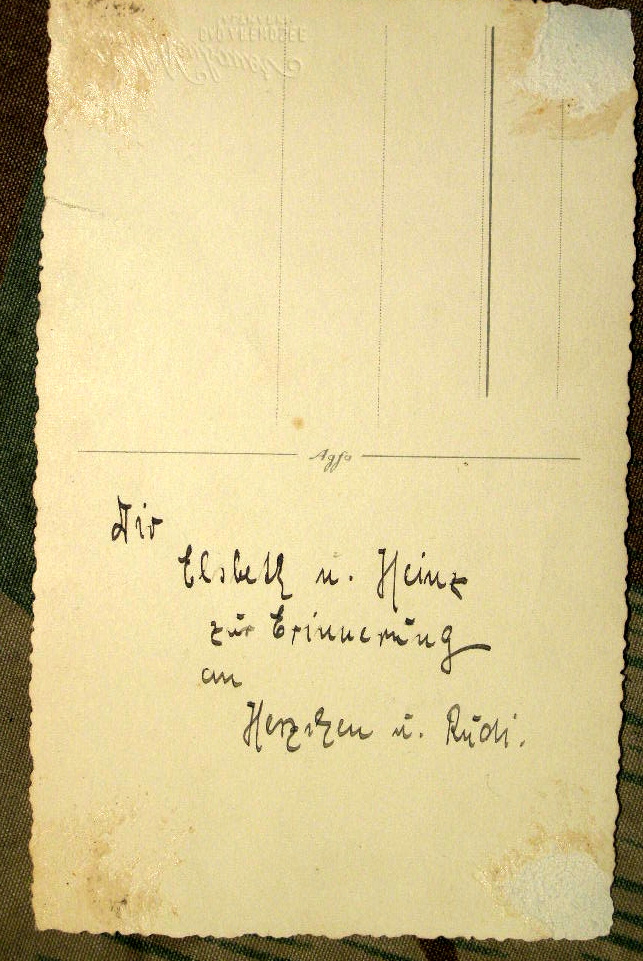 Agfa
Dir
Elsbeth u. Heinz
zur Erinnerung
an
Herzchen u. Rudi.